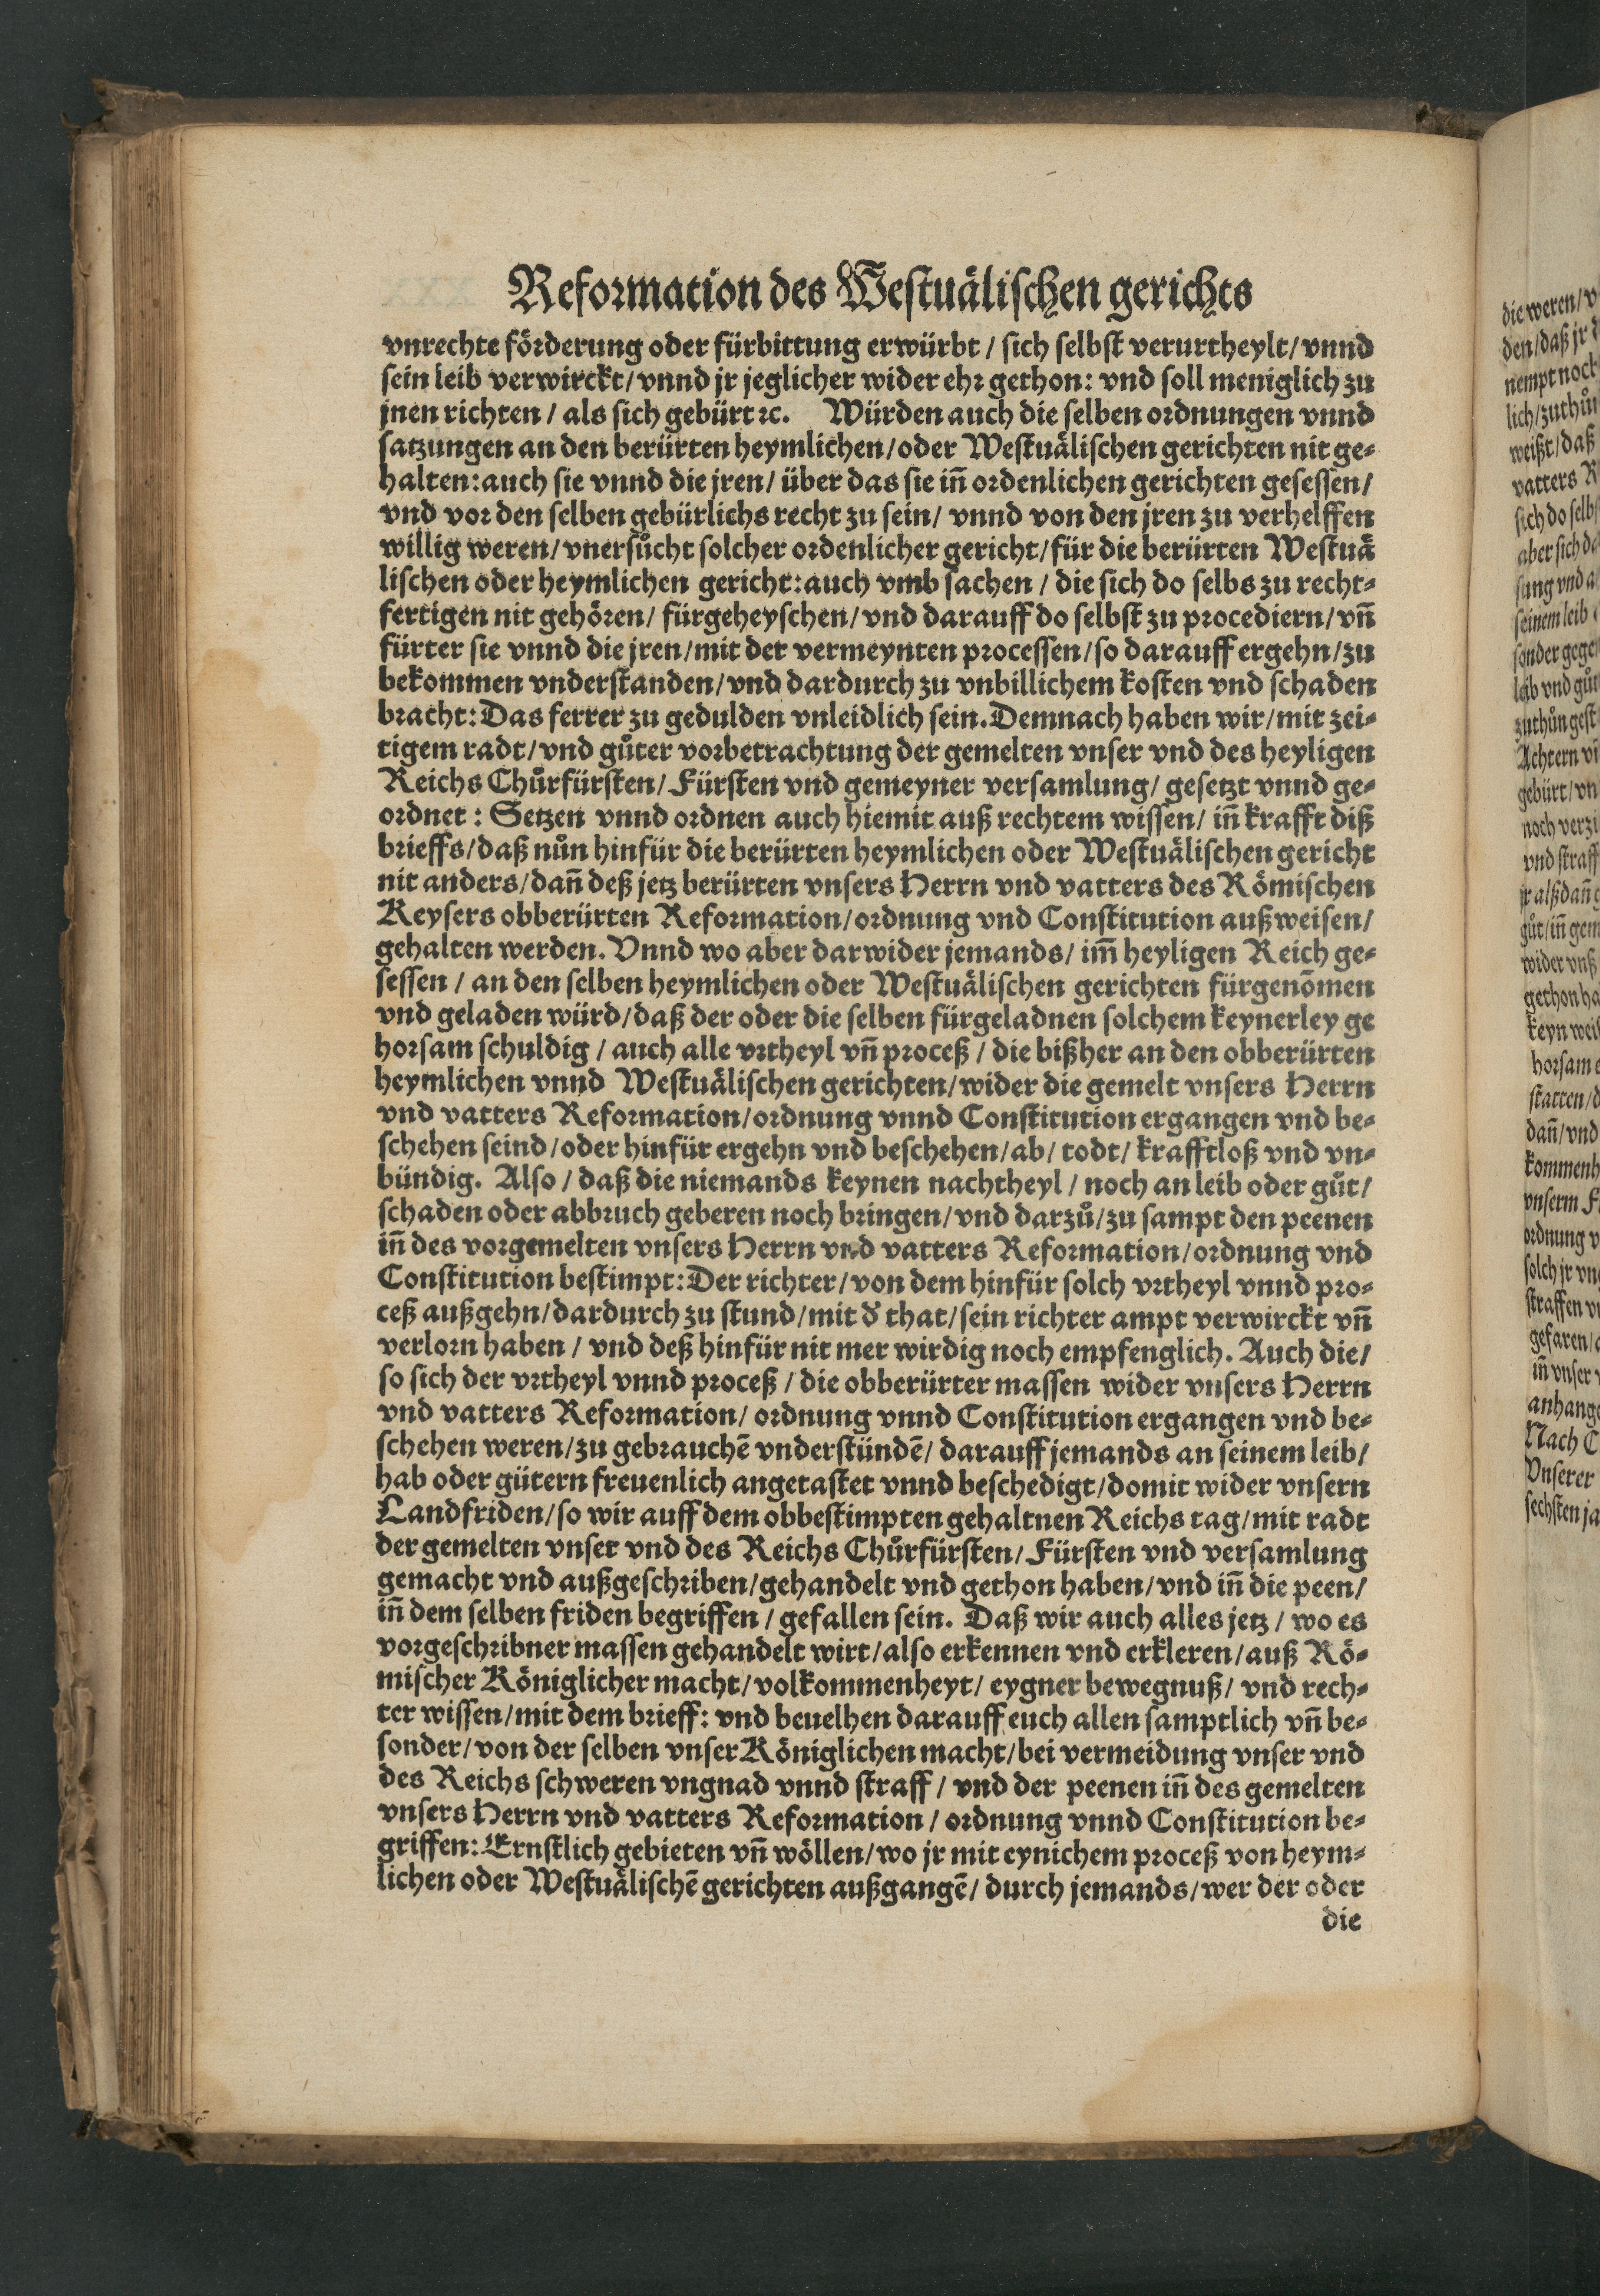 Reformation des Westuälischen gerichts
vnrechte förderung oder fürbittung erwürbt / sich selbst verurtheylt / vnnd
sein leib verwirckt / vnnd jr jeglicher wider ehr gethon: vnd soll meniglich zu
jnen richten / als sich gebürt ꝛc. Würden auch die selben ordnungen vnnd
satzungen an den berürten heymlichen / oder Westuälischen gerichten nit ge⸗
halten: auch sie vnnd die jren / über das sie inn̄ ordenlichen gerichten gesessen /
vnd vor den selben gebürlichs recht zu sein / vnnd von den jren zu verhelffen
willig weren / vnersůcht solcher ordenlicher gericht / für die berürten Westuä
lischen oder heymlichen gericht: auch vmb sachen / die sich do selbs zu recht⸗
fertigen nit gehören / fürgeheyschen / vnd darauff do selbst zu procediern / vnn̄
fürter sie vnnd die jren / mit der vermeynten processen / so darauff ergehn / zu
bekommen vnderstanden / vnd dardurch zu vnbillichem kosten vnd schaden
bracht: Das ferrer zu gedulden vnleidlich sein. Demnach haben wir / mit zei⸗
tigem radt / vnd gůter vorbetrachtung der gemelten vnser vnd des heyligen
Reichs Chůrfürsten / Fürsten vnd gemeyner versamlung / gesetzt vnnd ge⸗
ordnet : Setzen vnnd ordnen auch hiemit auß rechtem wissen / inn̄ krafft diß
brieffs / daß nůn hinfür die berürten heymlichen oder Westuälischen gericht
nit anders / dann̄ deß jetz berürten vnsers Herrn vnd vatters des Römischen
Keysers obberürten Reformation / ordnung vnd Constitution außweisen /
gehalten werden. Vnnd wo aber darwider jemands / imm̄ heyligen Reich ge⸗
sessen / an den selben heymlichen oder Westuälischen gerichten fürgenōmen
vnd geladen würd / daß der oder die selben fürgeladnen solchem keynerley ge
horsam schuldig / auch alle vrtheyl vnn̄ proceß / die bißher an den obberürten
heymlichen vnnd Westuälischen gerichten / wider die gemelt vnsers Herrn
vnd vatters Reformation / ordnung vnnd Constitution ergangen vnd be⸗
schehen seind / oder hinfür ergehn vnd beschehen / ab / todt / krafftloß vnd vn⸗
bündig. Also / daß die niemands keynen nachtheyl / noch an leib oder gůt /
schaden oder abbruch geberen noch bringen / vnd darzů / zu sampt den peenen
inn̄ des vorgemelten vnsers Herrn vnd vatters Reformation / ordnung vnd
Constitution bestimpt: Der richter / von dem hinfür solch vrtheyl vnnd pro⸗
ceß außgehn / dardurch zu stund / mit d̄ that / sein richter ampt verwirckt vnn̄
verlorn haben / vnd deß hinfür nit mer wirdig noch empfenglich. Auch die /
so sich der vrtheyl vnnd proceß / die obberürter massen wider vnsers Herrn
vnd vatters Reformation / ordnung vnnd Constitution ergangen vnd be⸗
schehen weren / zu gebrauchē vnderstündē / darauff jemands an seinem leib /
hab oder gütern freuenlich angetastet vnnd beschedigt / domit wider vnsern
Landfriden / so wir auff dem obbestimpten gehaltnen Reichs tag / mit radt
der gemelten vnser vnd des Reichs Chůrfürsten / Fürsten vnd versamlung
gemacht vnd außgeschriben / gehandelt vnd gethon haben / vnd inn̄ die peen /
inn̄ dem selben friden begriffen / gefallen sein. Daß wir auch alles jetz / wo es
vorgeschribner massen gehandelt wirt / also erkennen vnd erkleren / auß Rö⸗
mischer Königlicher macht / volkommenheyt / eygner bewegnuß / vnd rech⸗
ter wissen / mit dem brieff: vnd beuelhen darauff euch allen samptlich vnn̄ be⸗
sonder / von der selben vnser Königlichen macht / bei vermeidung vnser vnd
des Reichs schweren vngnad vnnd straff / vnd der peenen inn̄ des gemelten
vnsers Herrn vnd vatters Reformation / ordnung vnnd Constitution be⸗
griffen: Ernstlich gebieten vnn̄ wöllen / wo jr mit eynichem proceß von heym⸗
lichen oder Westuälischē gerichten außgangē / durch jemands / wer der oder
die
die weren /
den / daß jr
nempt noch
lich / zuthůn
weißt / daß
vatters
sich do selbst
aber sich
sung vnd
seinem leib
sonder
leib vnd
zuthůn
Achtern
gebürt /
noch
vnd straff
jr alßdann̄
gůt / inn̄
wider vnß
gethon
keyn
horsam
statten /
dann̄ / vnd
vnserm
ordnung
solch jr
straffen
gefaren /
inn̄ vnser
Nach
Vnserer
sechsten